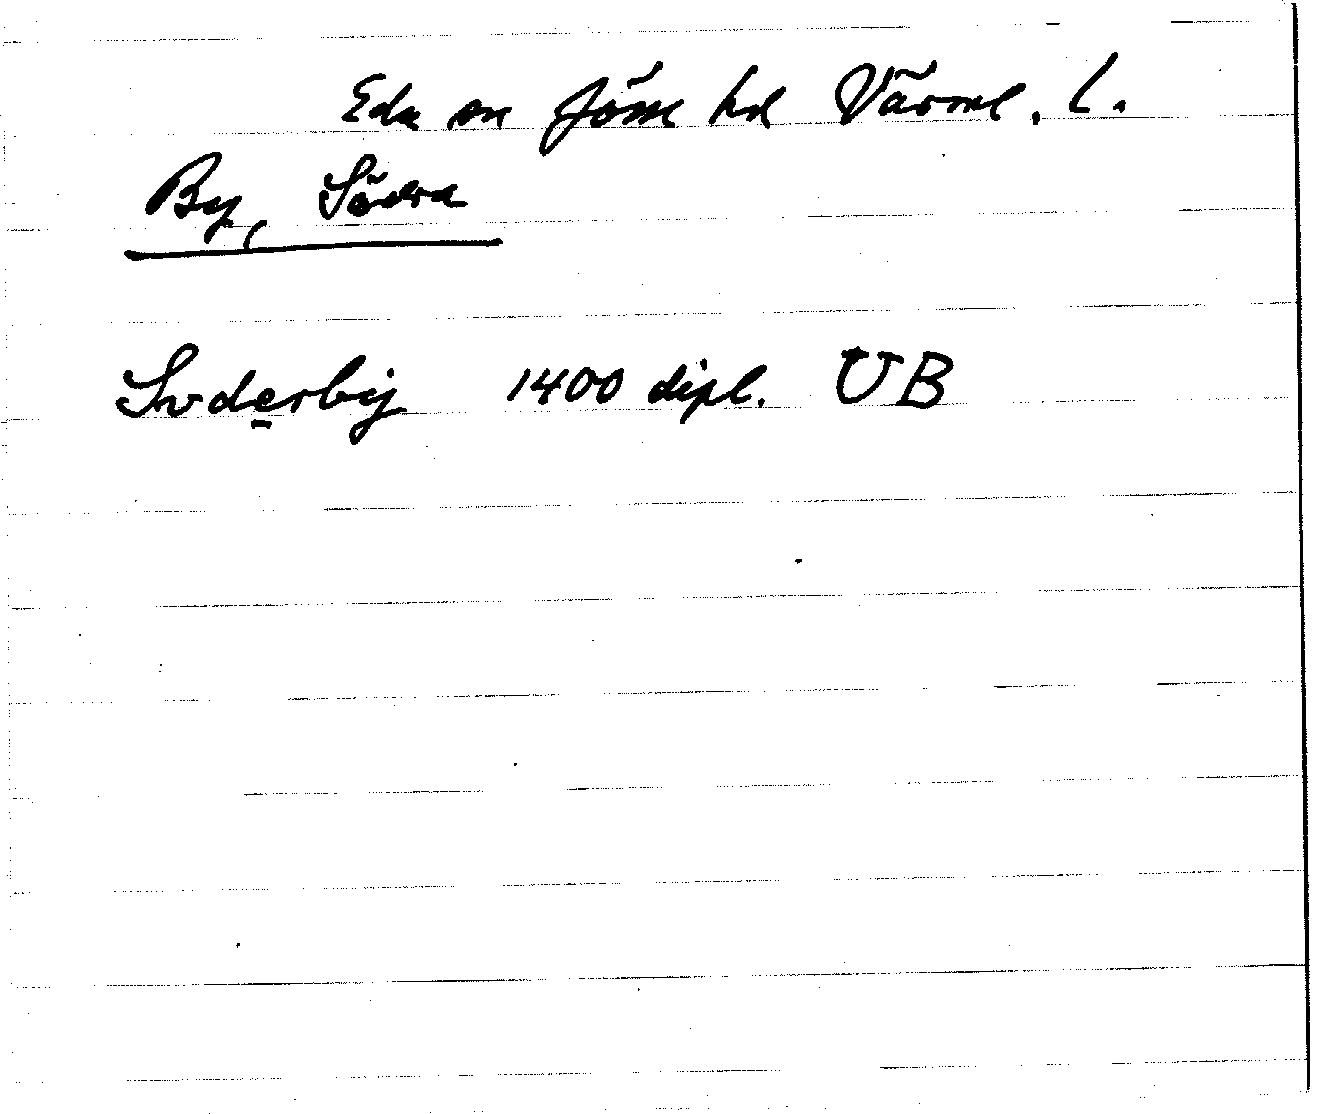 Eda sn Jösse hd Värml. l.
By, Södra
Suderbij 1400 dipl. UB